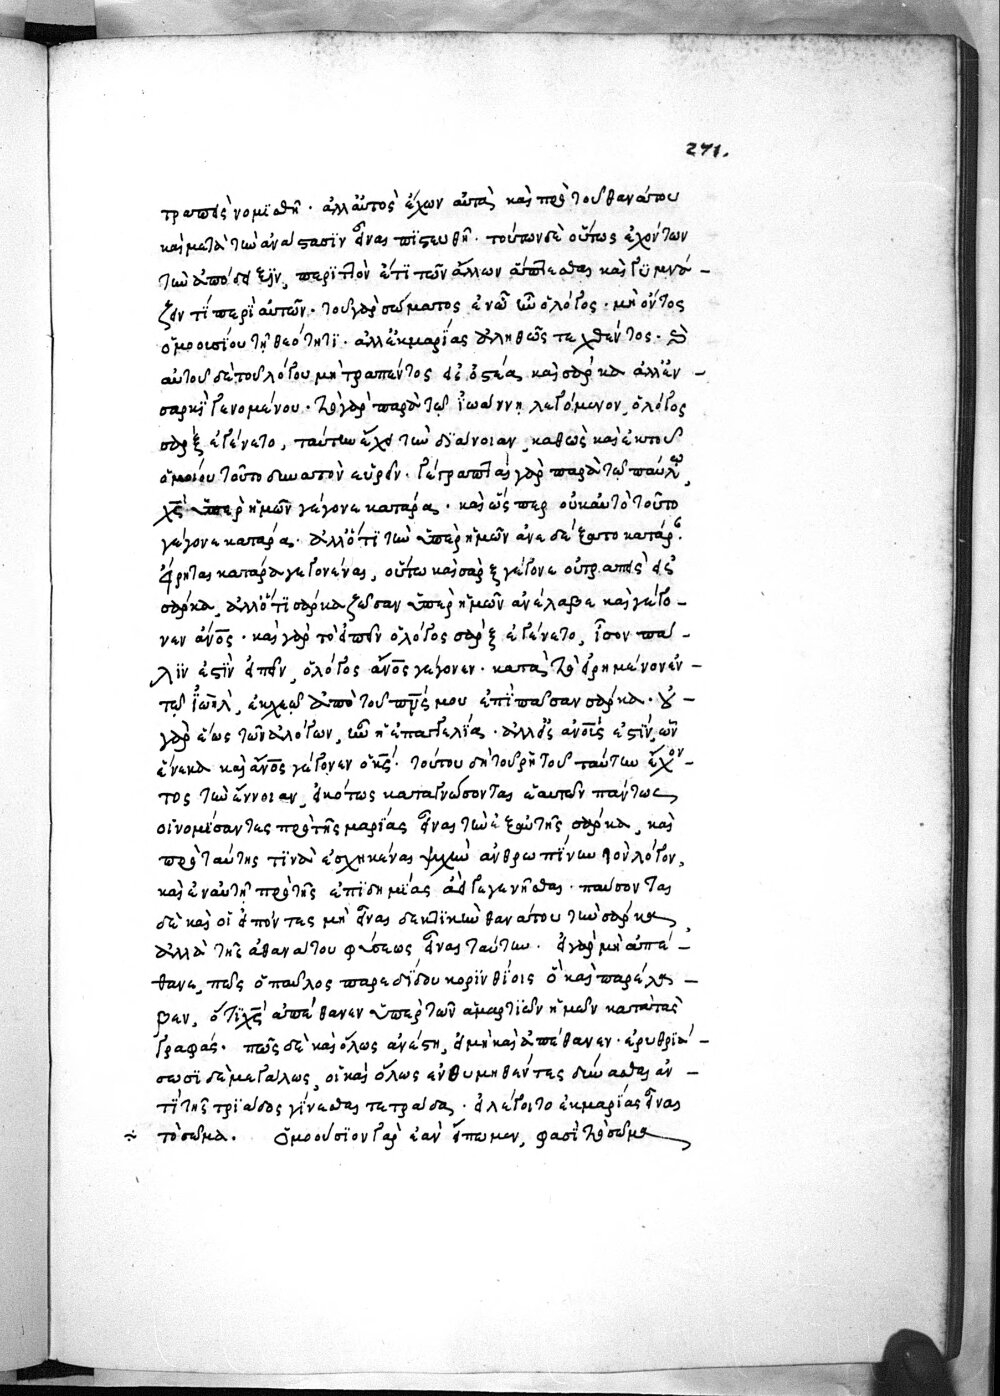 271.
τραπεὶς νομισθῆ· ἀλλ' αὐτὸς ἔχων αὐτὸ καὶ πρὸ τοῦ θανάτου
καὶ μετὰ τὴν ἀνάστασϊν εἶναι πϊστευθῆ. τούτων δὲ οὕτως ἐχόντων
τὴν ἀπόδειξϊν, περϊττὸν ἔτϊ τῶν ἄλλων ἅπτεσθαι καὶ γϋμνά –
ζειν τϊ περὶ αὐτῶν. τοῦ γὰρ σώματος ἐν ᾧ ἦν ὁ λόγος. μὴ ὄντος
ὁμοουσίου τῇ θεότητϊ. ἀλλ' ἐκ μαρίας ἀληθῶς τεχθέντος.
αὐτοῦ δὲ τοῦ λόγου μὴ τραπέντος εἰς ὀστέα καὶ σάρκα ἀλλ' ἐν –
σαρκὶ γενομένου. τὸ γὰρ παρὰ τῷ ἰωάννῃ λεγόμενον, ὁ λόγος
σὰρξ ἐγένετο, ταύτην ἔχει τὴν δϊάνοιαν, καθὼς καὶ ἐκ τοῦ
ὁμοίου τοῦτο δυνατὸν εὑρεῖν. γέγραπται γὰρ παρὰ τῷ παύλῳ,
χς ὑπὲρ ἡμῶν γέγονε κατάρα. καὶ ὥσπερ οὐκ αὐτὸ τοῦτο
γέγονε κατάρα. ἀλλ' ὅτϊ τὴν ὑπὲρ ἡμῶν ἀνεδέξατο κατάρ
εἴρηται κατάρα γεγονέναι, οὕτω καὶ σὰρξ γέγονε οὐ τραπεὶς εἰς
σάρκα, ἀλλ' ὅτϊ σάρκα ζῶσαν ὑπὲρ ἡμῶν ἀνέλαβε καὶ γέγο –
νεν ἄνος. καὶ γὰρ τὸ εἰπεῖν ὁ λόγος σὰρξ ἐγένετο, ἴσον πά –
λϊν ἐστϊν εἰπεῖν, ὁ λόγος ἄνος γέγονεν. κατὰ τὸ εἰρημένον ἐν –
τῷ ἰωὴλ, ἐκχεῶ ἀπὸ τοῦ πνς μου ἐπὶ πᾶσαν σάρκα. οὐ –
γὰρ ἕως τῶν ἀλόγων, ἦν ἡ ἐπαγγελία. ἀλλ' εἰς ἀνους ἐστϊν, ὧν
ἕνεκα καὶ ἄνος γέγονεν ὁ κς. τούτου δὴ τοῦ ῥητοῦ ταύτην ἔχον –
τος τὴν ἔννοιαν, εἰκότως καταγνώσονται ἑαυτῶν πάντως
οἱ νομίσαντες πρὸ τῆς μαρίας εἶναι τὴν ἐξ αὐτῆς σάρκα, καὶ
πρὸ ταύτης τϊνὰ ἐσχηκέναι ψυχὴν ἀνθρωπίνην τὸν λόγον,
καὶ ἐν αὐτῇ πρὸ τῆς ἐπιδημίας ἀεὶ γεγενῆσθαι. παύσονται
δὲ καὶ οἱ εἰπόντες μὴ εἶναι δεκτικὴν θανάτου τὴν σάρκα,
ἀλλὰ τῆς ἀθανάτου φύσεως εἶναι ταύτην. εἰ γὰρ μὴ ἀπέ –
θανε, πῶς ὁ παῦλος παρεδίδου κορϊνθίοις ὃ καὶ παρέλα –
βεν, ὅτϊ χς ἀπέθανεν ὑπὲρ τῶν ἁμαρτϊῶν ἡμῶν κατὰ τὰς
γραφάς. πῶς δὲ καὶ ὅλως ἀνέστη, εἰ μὴ καὶ ἀπέθανεν. ἐρυθρϊά –
σωσϊ δὲ μεγάλως, οἱ καὶ ὅλως ἐνθυμηθέντες δύνασθαι ἀν –
τὶ τῆς τρϊάδος γίνεσθαι τετράδα. εἰ λέγοιτο ἐκ μαρίας εἶναι
τὸ σῶμα. ὁμοούσϊον γὰρ ἐὰν εἴπωμεν, φασὶ τὸ σῶμα